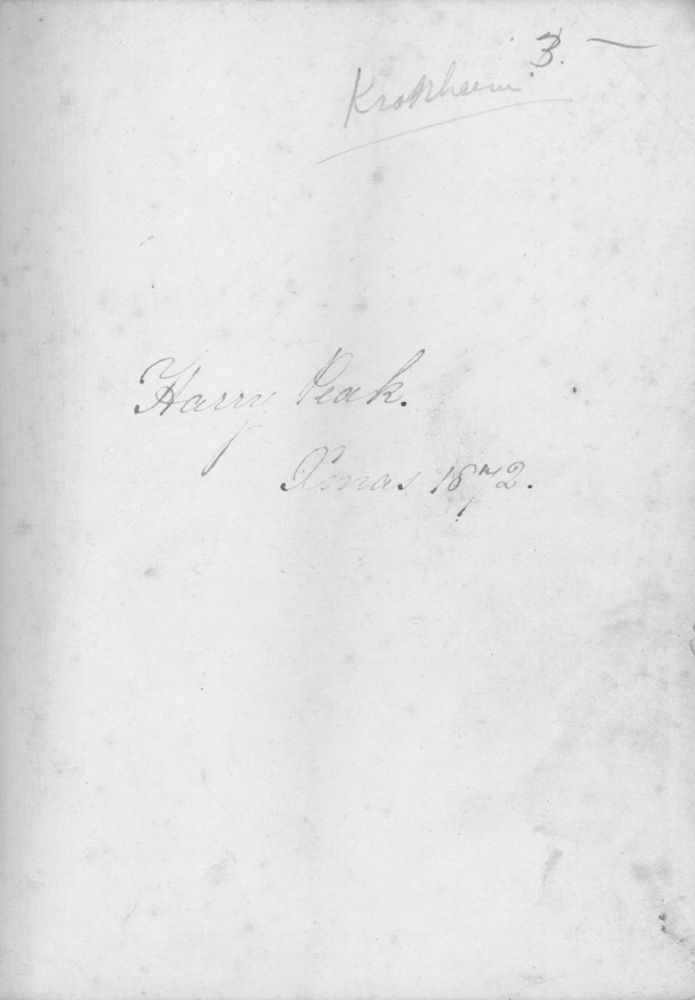 3. —
Harry Peak.
Xmas 1872.